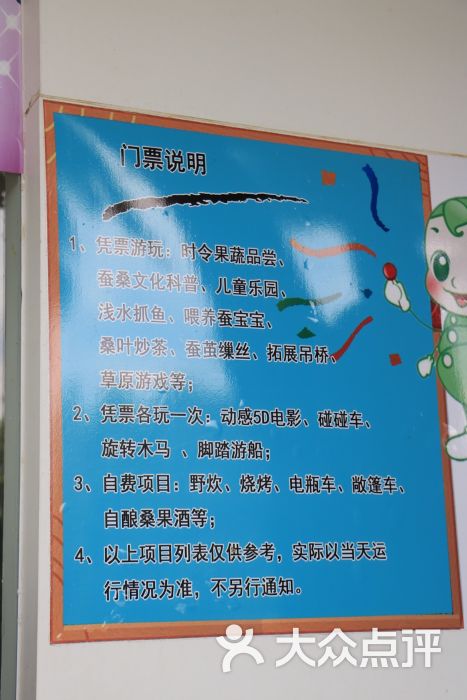 门票说明
1、凭票游玩：时令果蔬品尝、
蚕桑文化科普、儿童乐园、
浅水抓鱼、喂养蚕宝宝、
桑叶炒茶、蚕茧缫丝、拓展吊桥、
草原游戏等；
2、凭票各玩一次：动感5D电影、碰碰车、
旋转木马 、脚踏游船；
3、自费项目：野炊、烧烤、电瓶车、敞篷车、
自酿桑果酒等；
4、以上项目列表仅供参考，实际以当天运
行情况为准，不另行通知。
大众点评